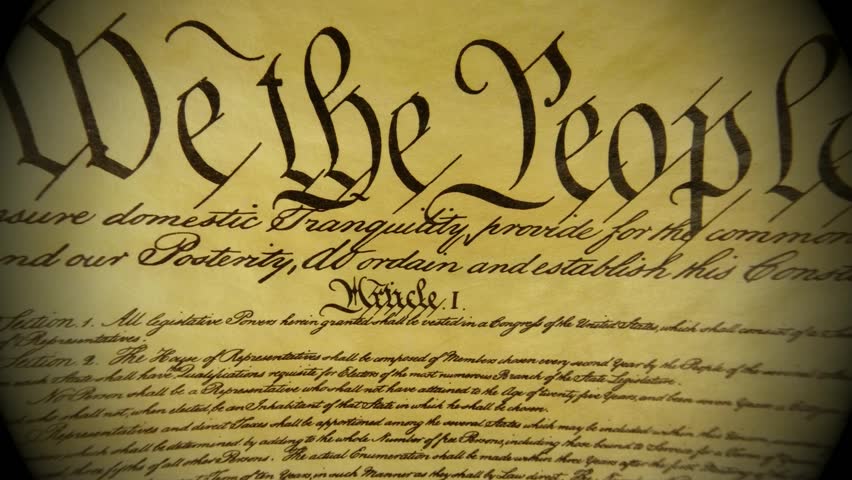 We the People
nsure domestic Tranquility, provide for the common
nd our Posterity, do ordain and establish this Const
Article. I.
Section. 1. All legislative Powers herein granted shall be vested in a Congress of the United States, which shall consist of a
of Representatives.
Section. 2. The House of Representatives shall be composed of Members chosen every second Year by the People of the several
in each State shall have the Qualifications requisite for Electors of the most numerous Branch of the State Legislature.
No Person shall be a Representative who shall not have attained to the Age of twenty five Years, and been seven Years a Citizen
and who shall not, when elected, be an Inhabitant of that State in which he shall be chosen.
Representatives and direct Taxes shall be apportioned among the several States which may be included within this Union,
which shall be determined by adding to the whole Number of free Persons, including those bound to Service for a Term of Years
three fifths of all other Persons. The actual Enumeration shall be made within three Years after the first Meeting of
Term of ten Years, in such Manner as they shall by Law direct. The